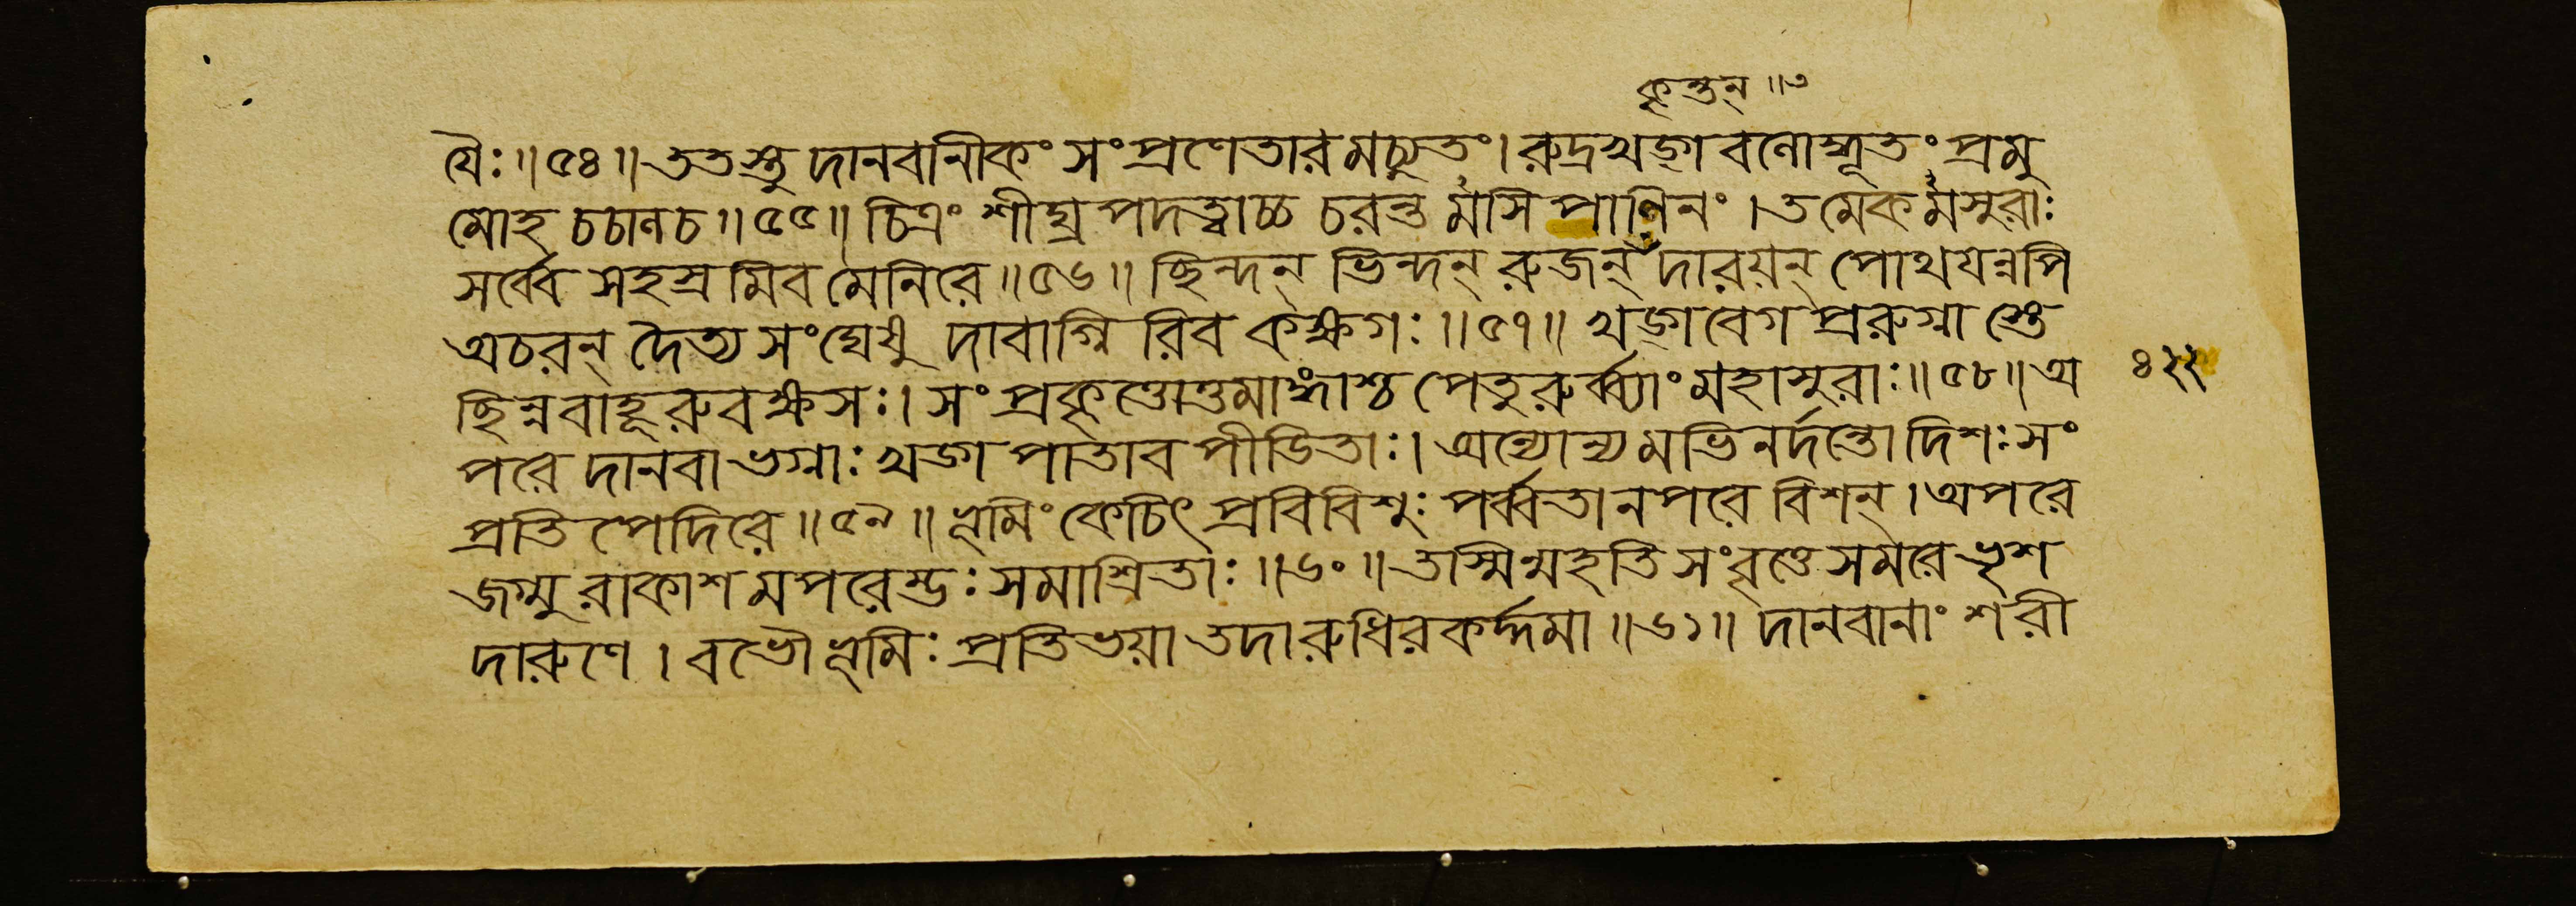 কৃন্তন্ ॥৩
যৈঃ॥৫৪॥ততস্তু দানবানীকং সংপ্রণেতারমচ্যুতং।রুদ্রখড়্গবলোদ্ধূতং প্রমু
মোহ চচালচ॥৫৫॥চিত্রং শীঘ্রপদত্বাচ্চ চরন্তমসিপাণিনং।তমেকমসুরাঃ
সর্ব্বে সহস্রমিব মেনিরে॥৫৬॥ছিন্দন্ ভিন্দন্ রুজন্ দারয়ন্ পোথযন্নপি
অচরন্ দৈত্যসংঘেষু দাবাগ্নিরিব কক্ষগঃ॥৫৭॥খড়্গবেগপ্ররুগ্নাস্তে
ছিন্নবাহূরুবক্ষসঃ।সংপ্রকৃত্তোত্তমাঙ্গাশ্চ পেতুরুর্ব্ব্যাং মহাসুরাঃ॥৫৮॥অ ৪২২
পরে দানবা ভগ্নাঃ খড়্গপাতাবপীডিতাঃ।অন্যোন্যমভিনর্দন্তো দিশঃ সং
প্রতিপেদিরে॥৫৯॥ভূমিং কেচিৎ প্রবিবিশুঃ পর্ব্বতানপরে বিশন্।অপরে
জগ্মুরাকাশমপরেম্ভঃ সমাশ্রিতাঃ॥৬০॥তাস্মিন্মহতি সংবৃত্তে সমরে ভৃশ
দারুণে।বভৌ ভূমিঃ প্রতিভয়া তদা রুধিরকর্দ্দমা॥৬১॥দানবানাং শরী